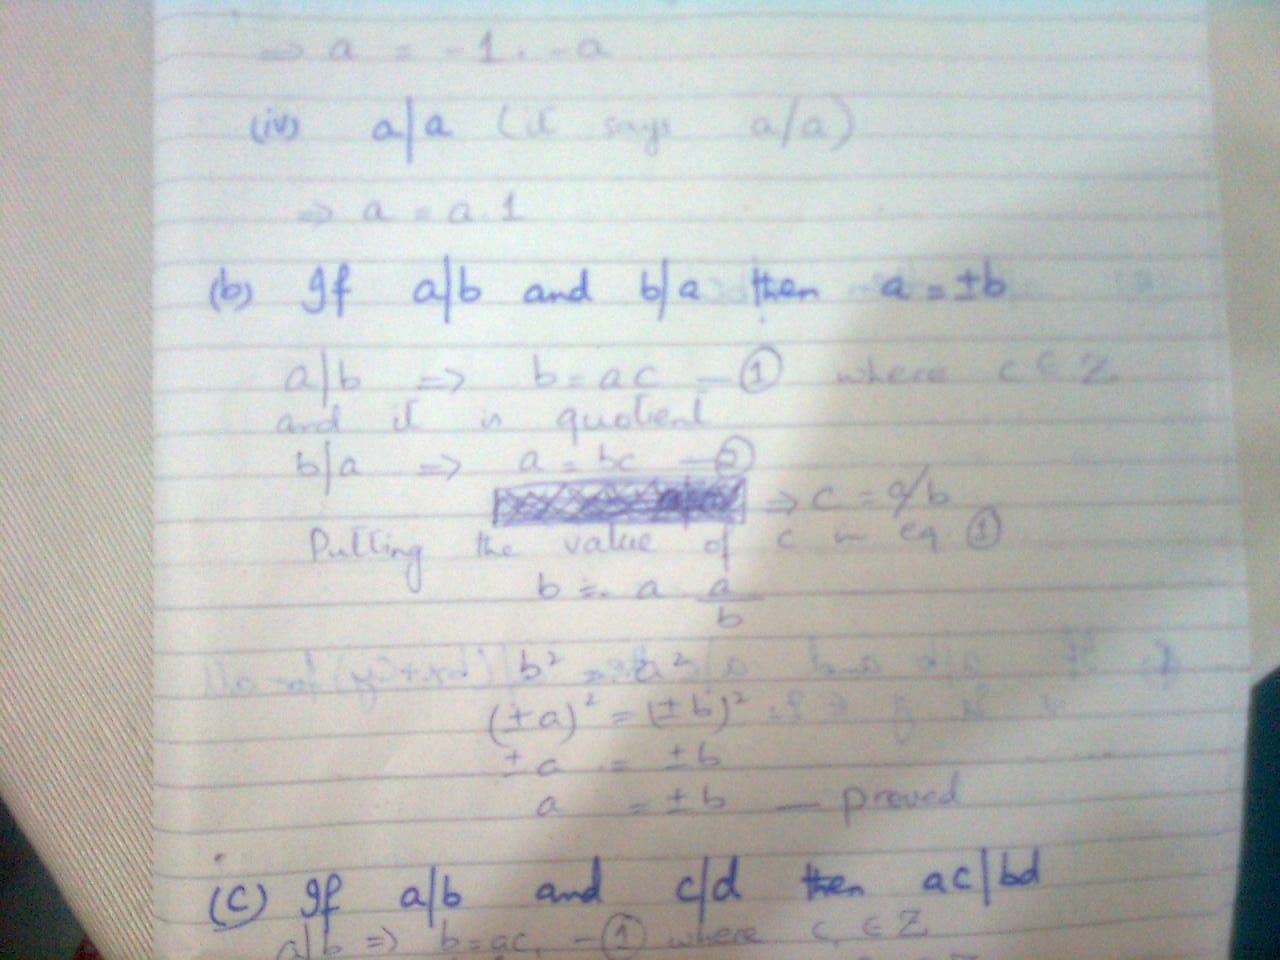 ⇒ a = -1 . -a
(iv) a|a (it says a/a)
⇒ a = a.1
(b) If a|b and b|a then a = ±b
a|b ⇒ b = ac — ① where c ∈ Z
and it is quotient
b|a ⇒ a = bc — ②
⇒ c = a/b
Putting the value of c in eq ①
b = a a/b
b² = a²
(±a)² = (±b)²
±a = ±b
a = ±b — proved
(C) If a|b and c/d then ac|bd
a|b ⇒ b = ac, — ① where c, ∈ Z